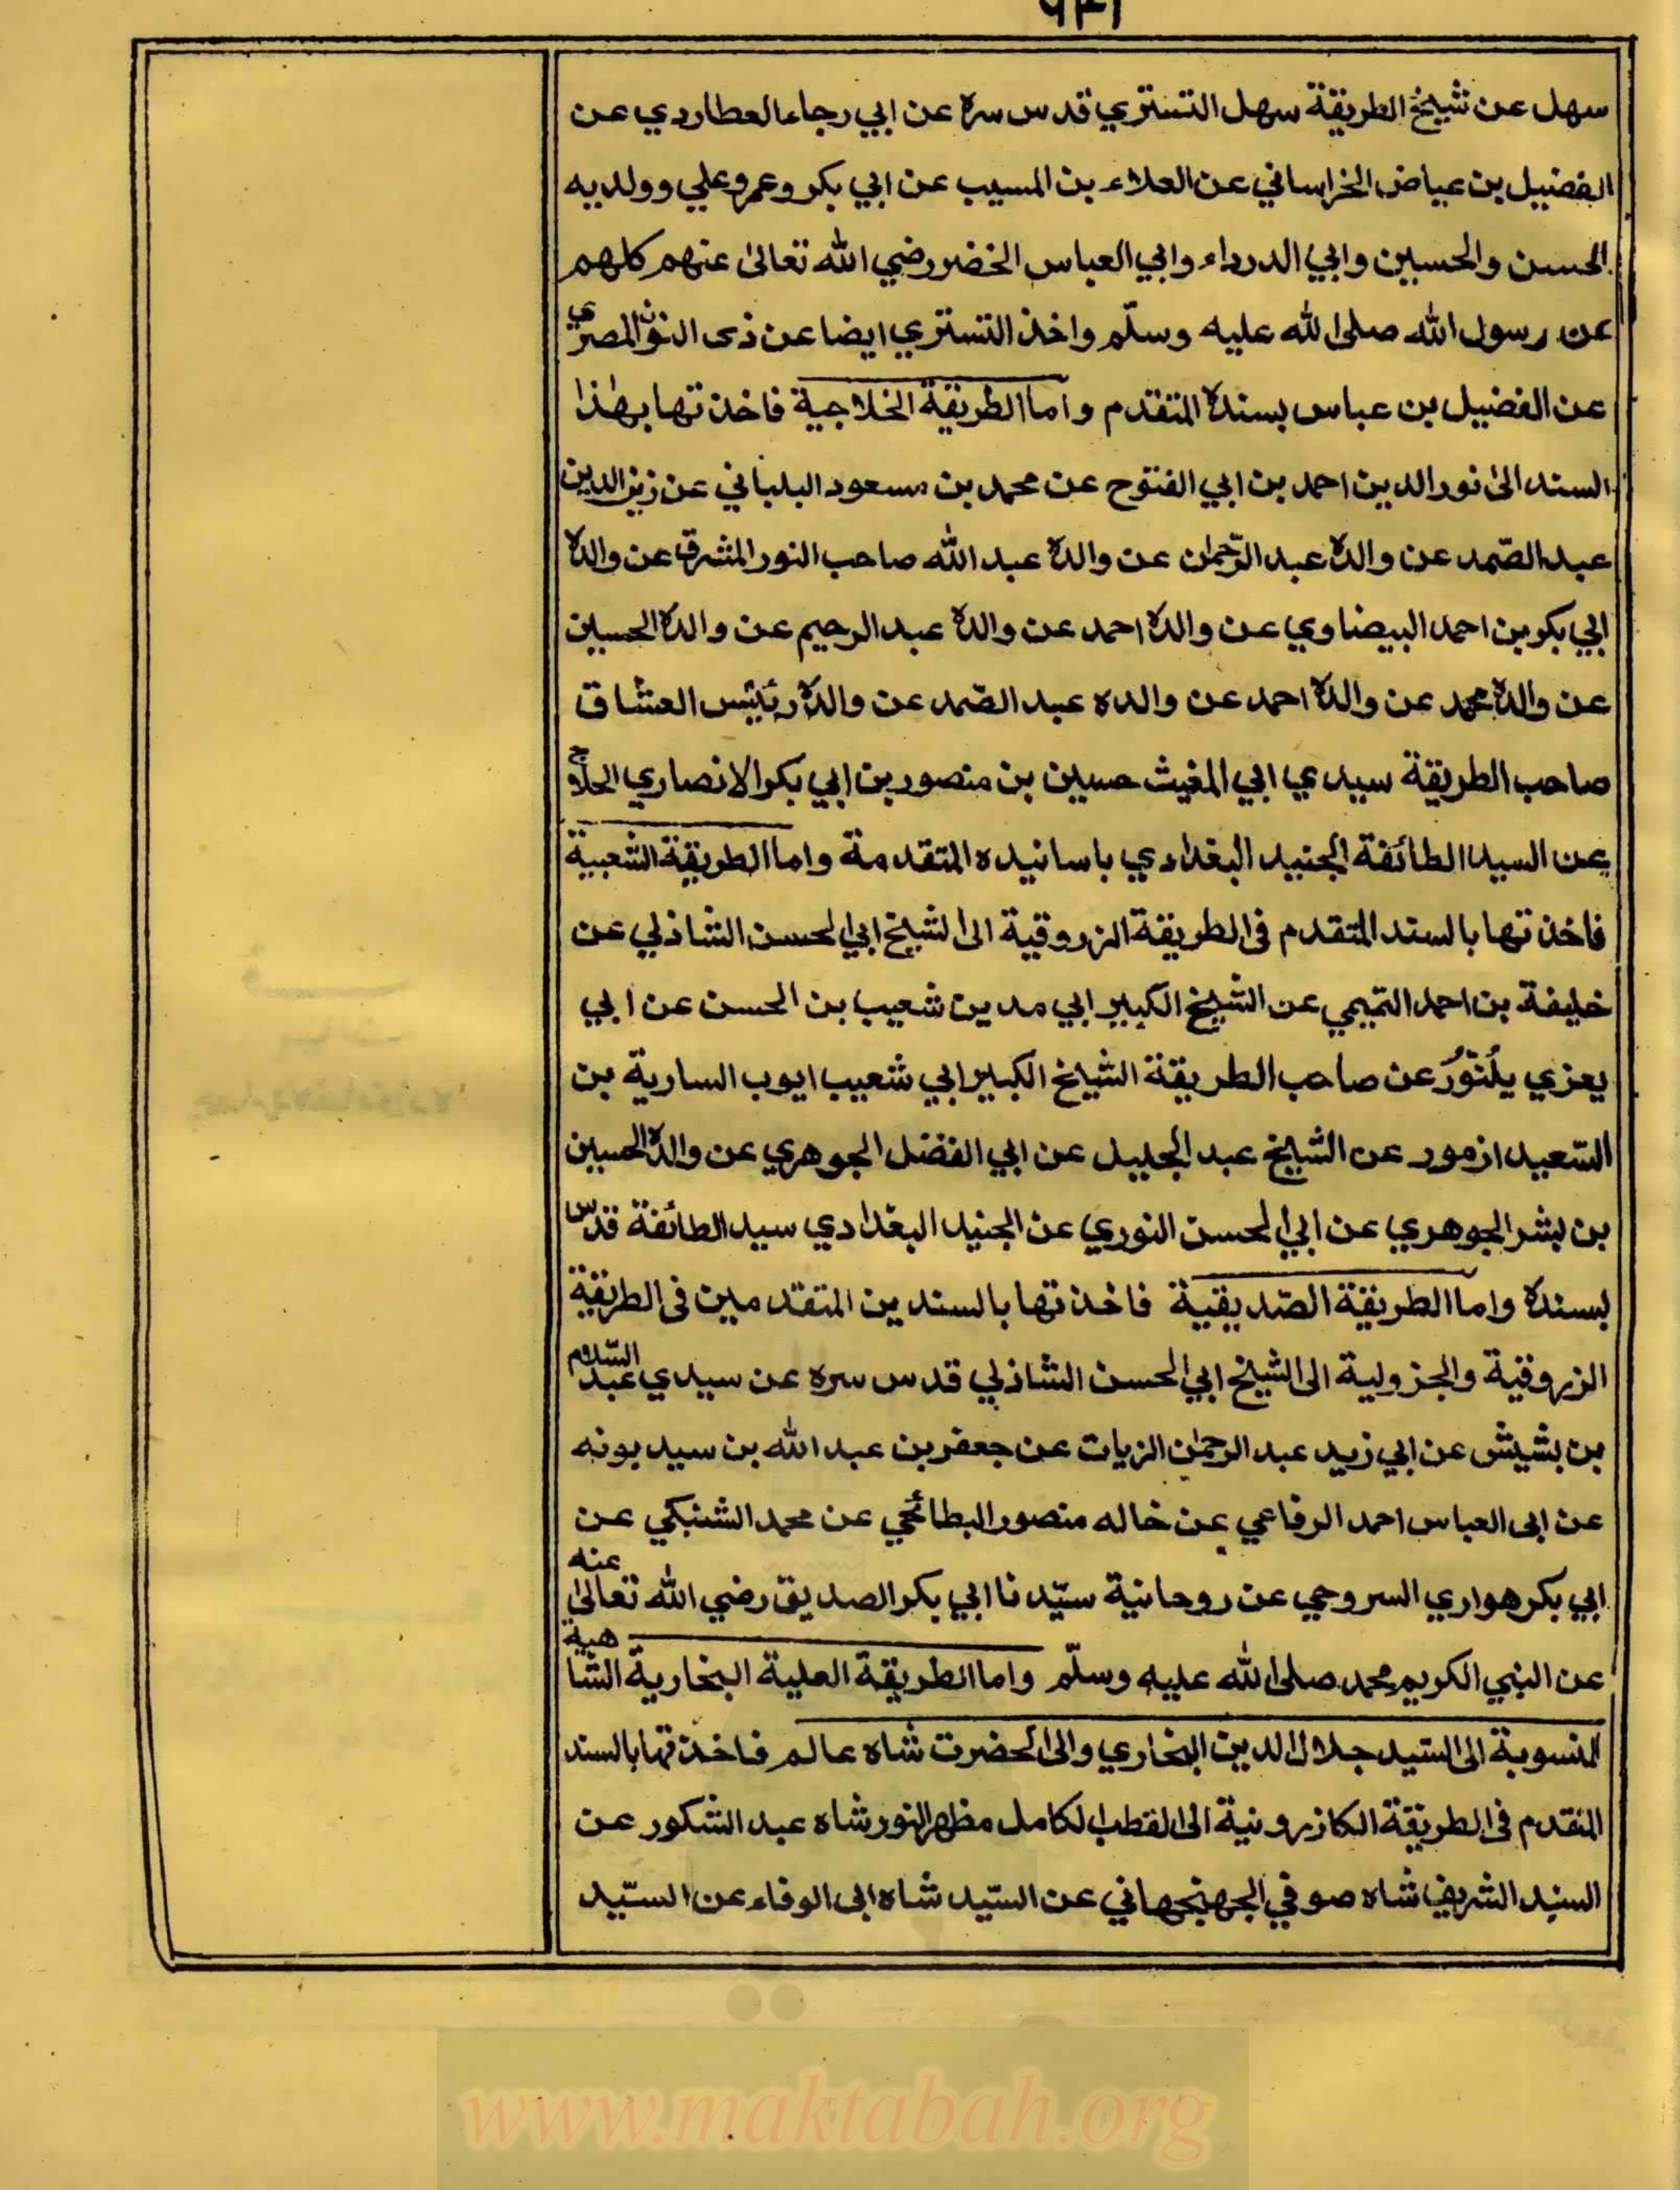 سهل عن شيخ الطريقة سهل التستري قدس سره عن ابي رجاء العطاردي عن
الفضيل بن عياض الخراساني عن العلاء بن المسيب عن ابي بكر وعمر وعلي وولديه
الحسن والحسين وابي الدرداء وابي العباس الخضر رضي الله تعالى عنهم كلهم
عن رسول الله صلى الله عليه وسلّم واخذ التستري ايضا عن ذى النون المصري
عن الفضيل بن عباس بسنده المتقدم واما الطريقة الخلاجية فاخذتها بهٰذا
السند الى نور الدين احمد بن ابي الفتوح عن محمد بن مسعود البلياني عن زين الدين
عبد الصّمد عن والده عبد الرّحمٰن عن والده عبد الله صاحب النور المشرق عن والده
ابي بكر بن احمد البيضاوي عن والده احمد عن والده عبد الرحيم عن والده الحسين
عن والده محمد عن والده احمد عن والده عبد الصّمد عن والده رئيس العشاق
صاحب الطريقة سيدي ابي المغيث حسين بن منصور بن ابي بكر الانصاري الحلاج
عن السيد الطائفة الجنيد البغدادي باسانيده المتقدمة واما الطريقة الشعبية
فاخذتها بالسند المتقدم فى الطريقة الزروقية الى الشيخ ابي الحسن الشاذلي عن
خليفة بن احمد التميمي عن الشيخ الكبير ابي مدين شعيب بن الحسن عن ابي
يعزي يلنّور عن صاحب الطريقة الشيخ الكبير ابي شعيب ايوب السارية بن
السّعيد ازمور عن الشيخ عبد الجليل عن ابي الفضل الجوهري عن والده الحسين
بن بشر الجوهري عن ابي الحسن النوري عن الجنيد البغدادي سيد الطائفة قدّس
بسنده واما الطريقة الصّديقية فاخذتها بالسندين المتقدمين فى الطريقة
الزروقية والجزولية الى الشيخ ابي الحسن الشاذلي قدس سره عن سيدي عبد السّلام
بن بشيش عن ابي زيد عبد الرحمٰن الزيات عن جعفر بن عبد الله بن سيد بونه
عن ابى العباس احمد الرفاعي عن خاله منصور البطائحي عن محمد الشنبكي عن
ابي بكر هواري السروحي عن روحانية سيّدنا ابي بكر الصديق رضي الله تعالىٰ عنه
عن النبي الكريم محمد صلى الله عليه وسلّم واما الطريقة العلية البخارية الشاهية
المنسوبة الى السّيد جلال الدين البخاري والى الحضرت شاه عالم فاخذتها بالسند
المتقدم فى الطريقة الكازرونية الى القطب الكامل مظهر النور شاه عبد الشكور عن
السيد الشريف شاه صوفي الجهنجهاني عن السّيد شاه ابى الوفاء عن السّيد
www.maktabah.org